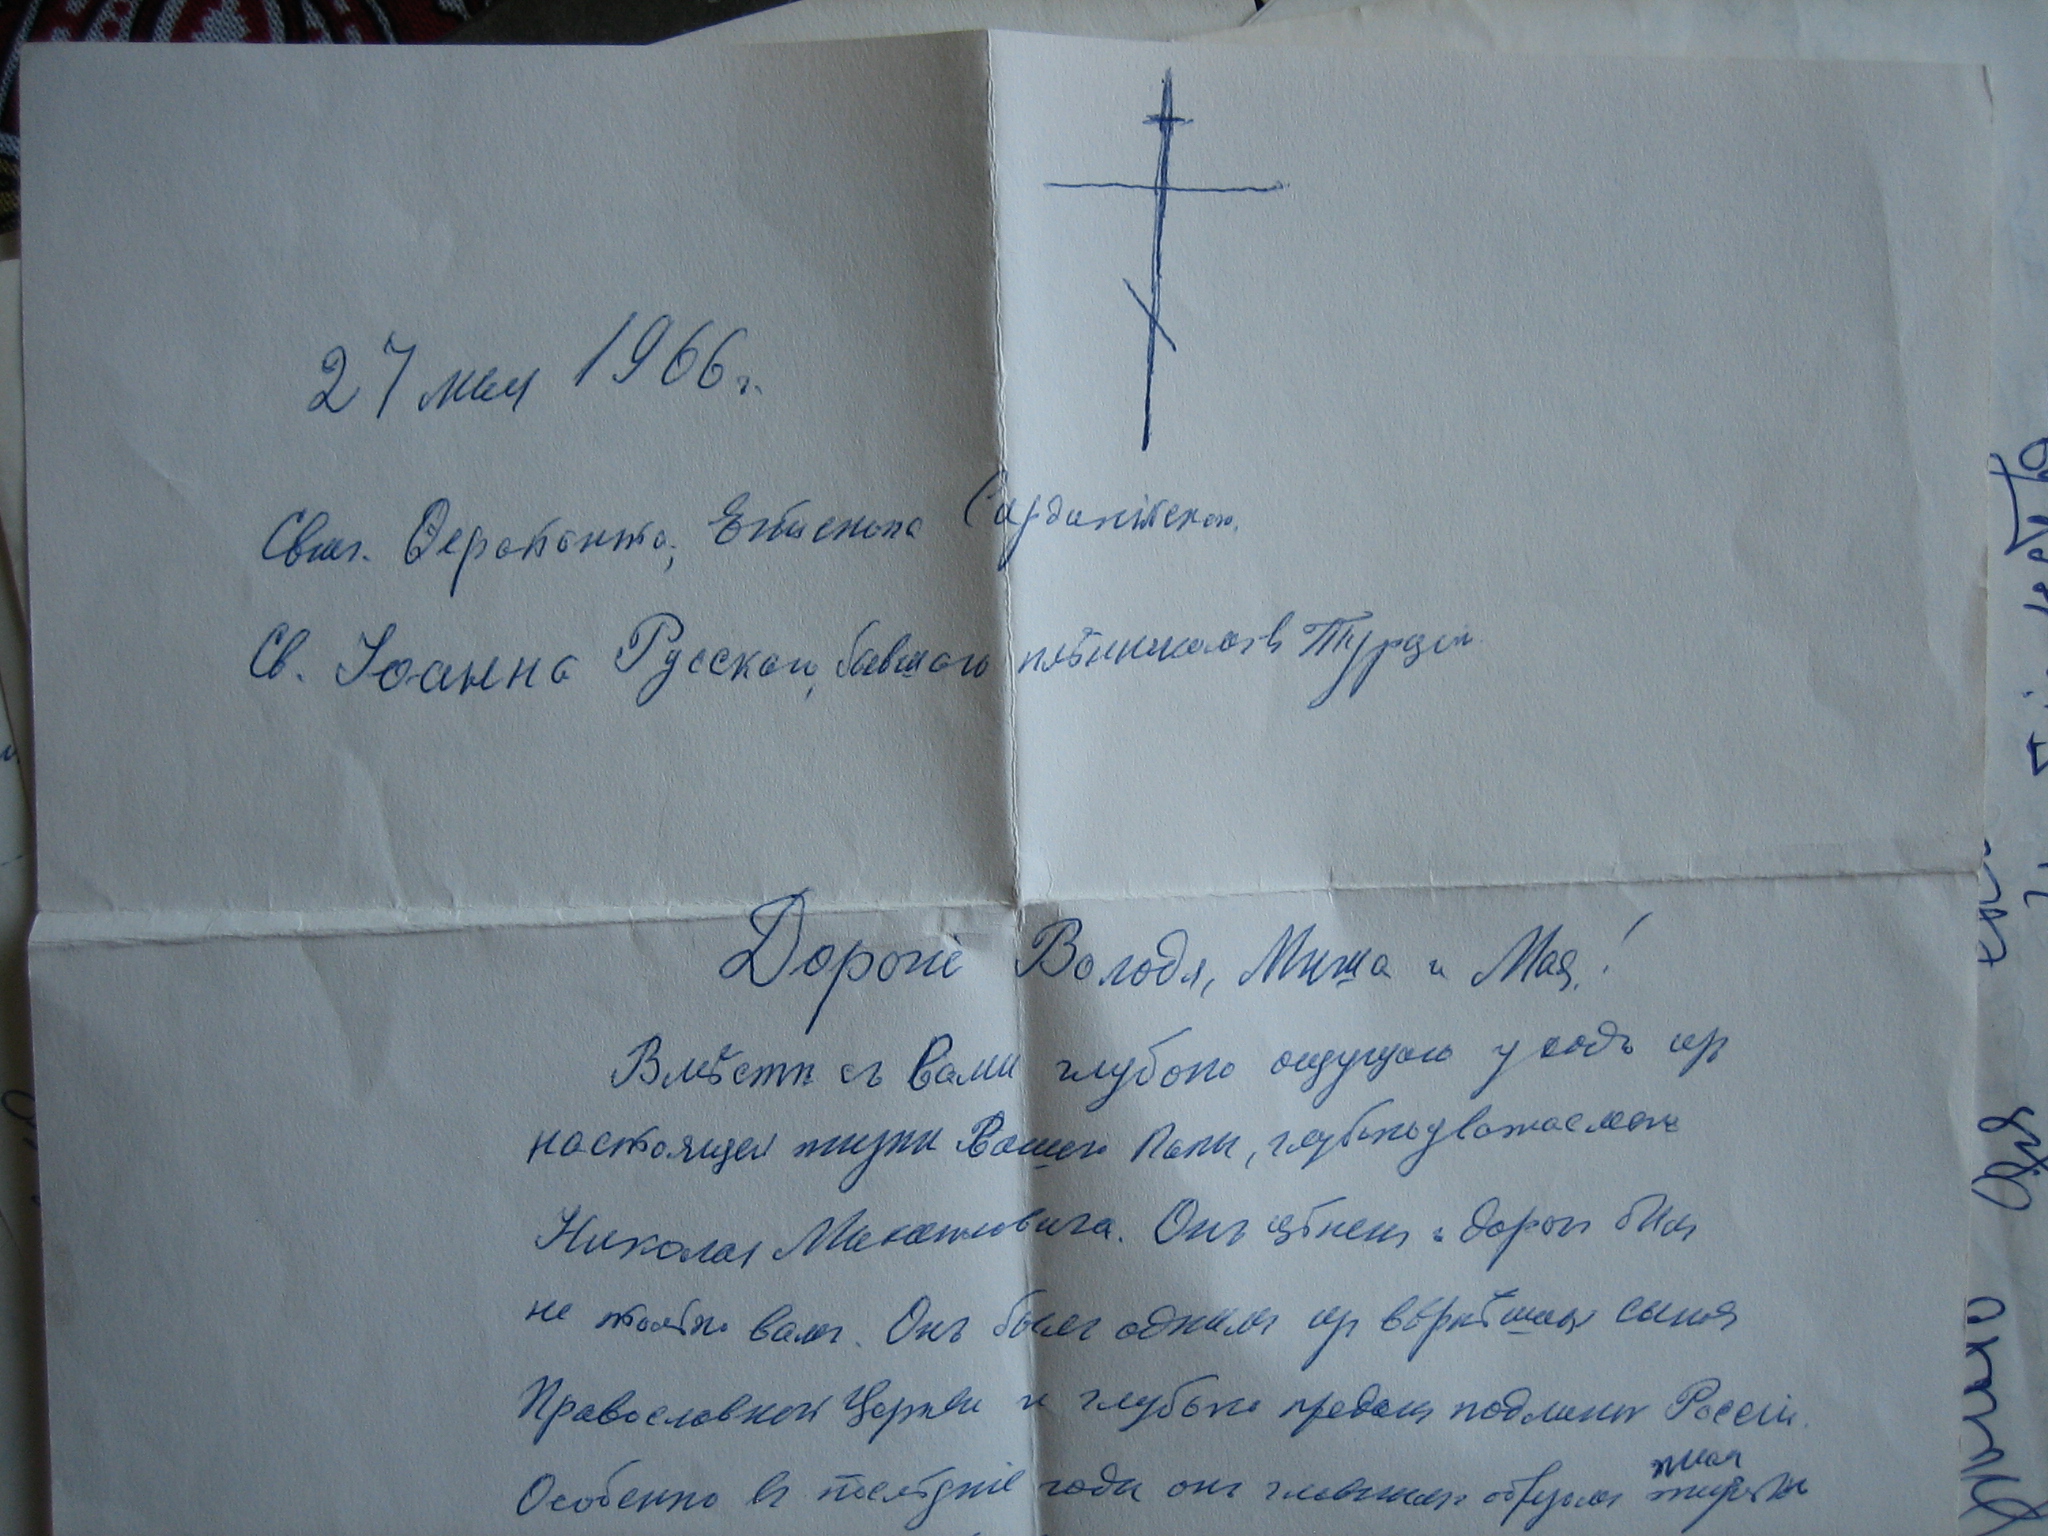 27 мая 1966 г.
Свщ. Ѳерапонта, Епископа Сардикійскаго,
Св. Іоанна Русскаго, бывшаго плѣнникомъ въ Турціи.
Дорогіе Володя, Миша и Мая!
Вмѣстѣ съ Вами глубоко ощущаю уходъ изъ
настоящей жизни Вашего Папы, глубокоуважаемаго
Николая Михайловича. Онъ цѣненъ и дорогъ былъ
не только вамъ. Онъ былъ однимъ изъ вѣрнѣйшихъ сыновъ
Православной Церкви и глубоко преданъ подлинной Россіи.
Особенно въ послѣдніе годы онъ главнымъ образомъ